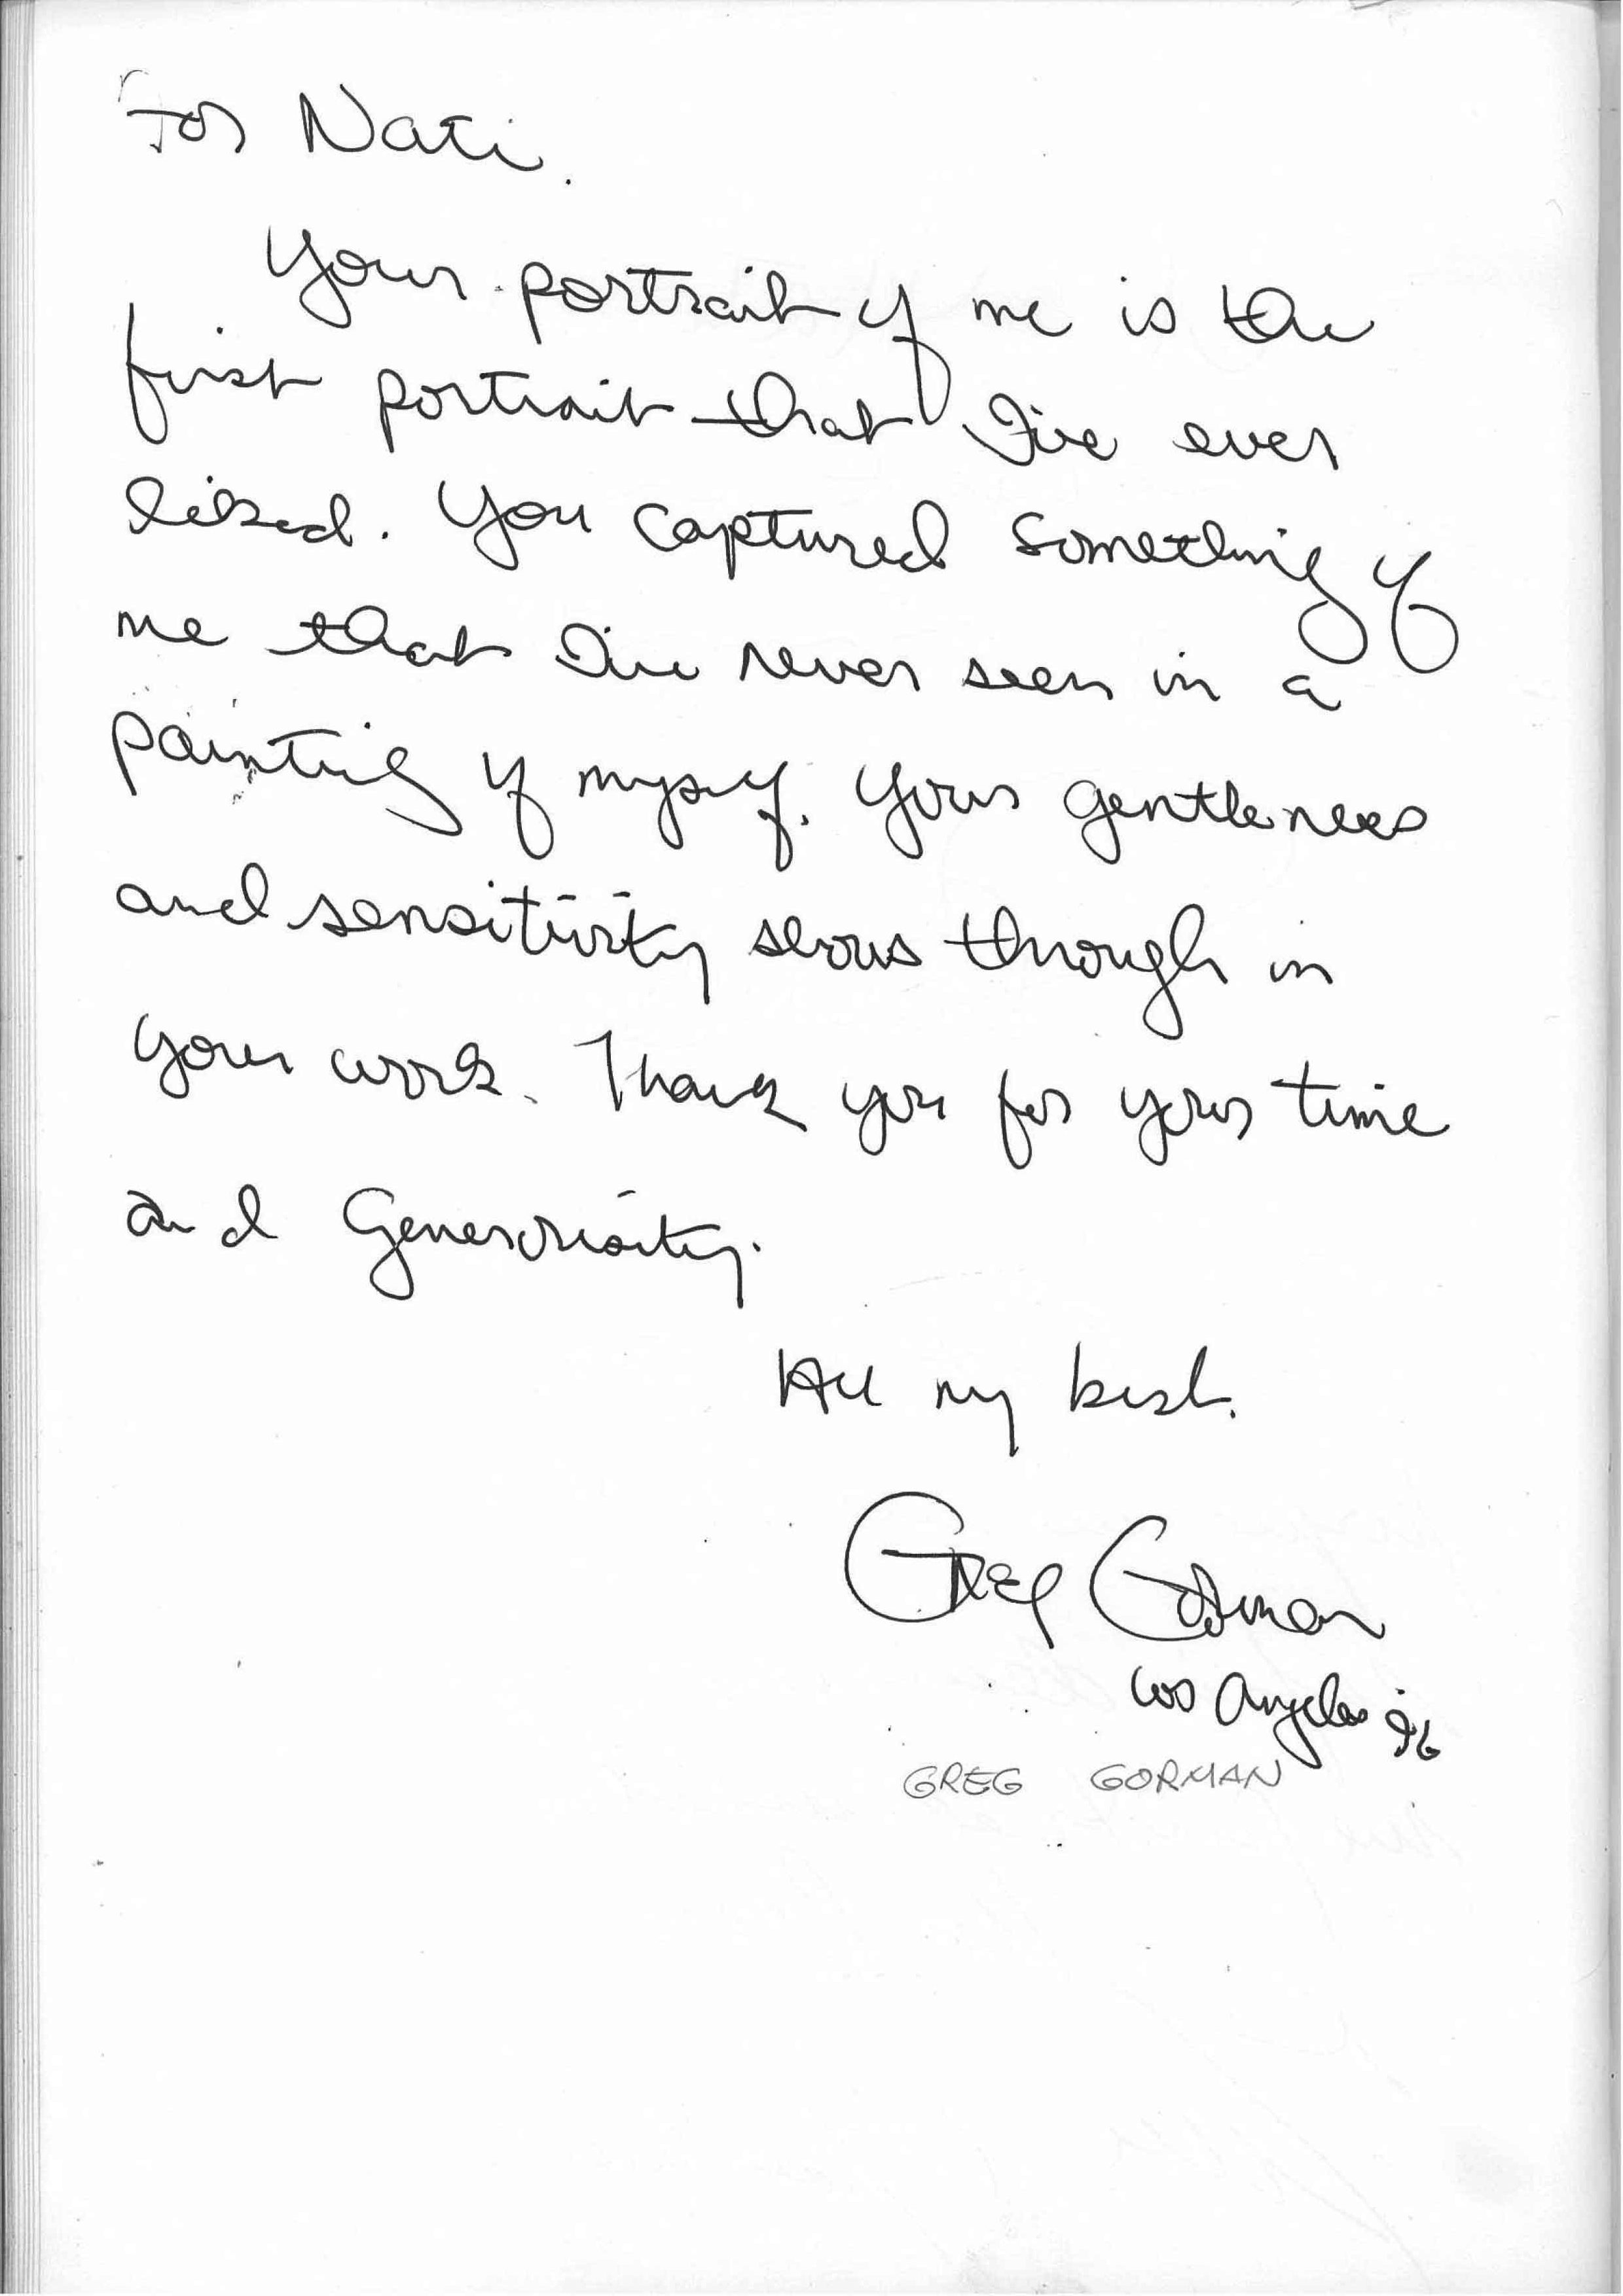 For Nati.
Your portrait of me is the
first portrait that I've ever
liked. You captured something of
me that I've never seen in a
painting of myself. Your gentleness
and sensitivity shows through in
your work. Thank you for your time
and Generousity.
All my best.
Greg Gorman
Los Angeles 96
GREG GORMAN